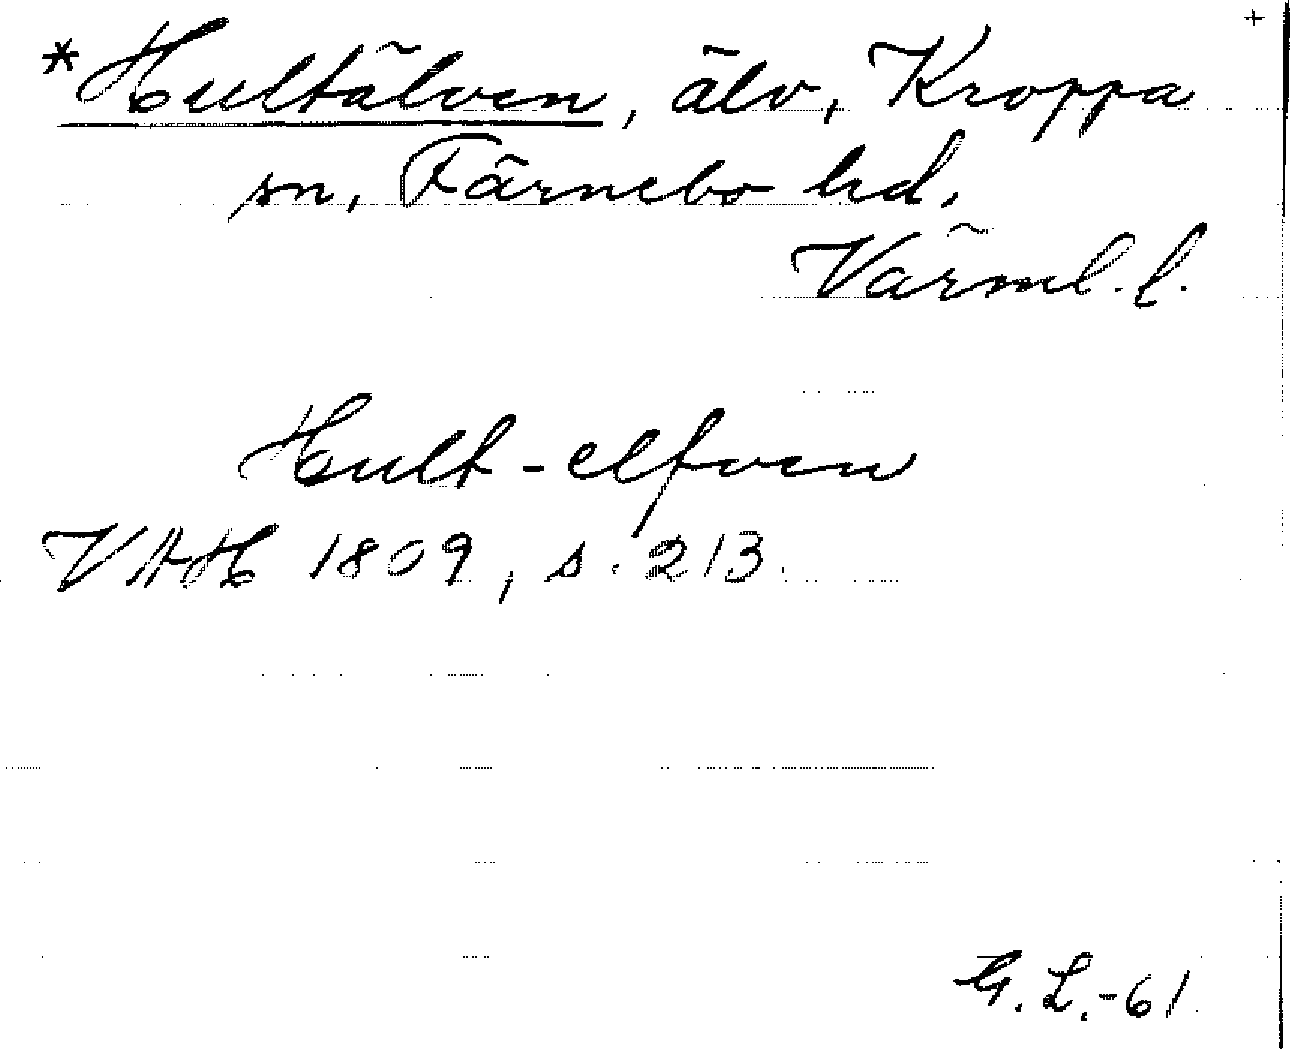 +
*Hultälven, älv, Kroppa
sn, Färnebo hd,
Värml. l.
Hult-elfven
VAH 1809, s. 213
G. L.-61